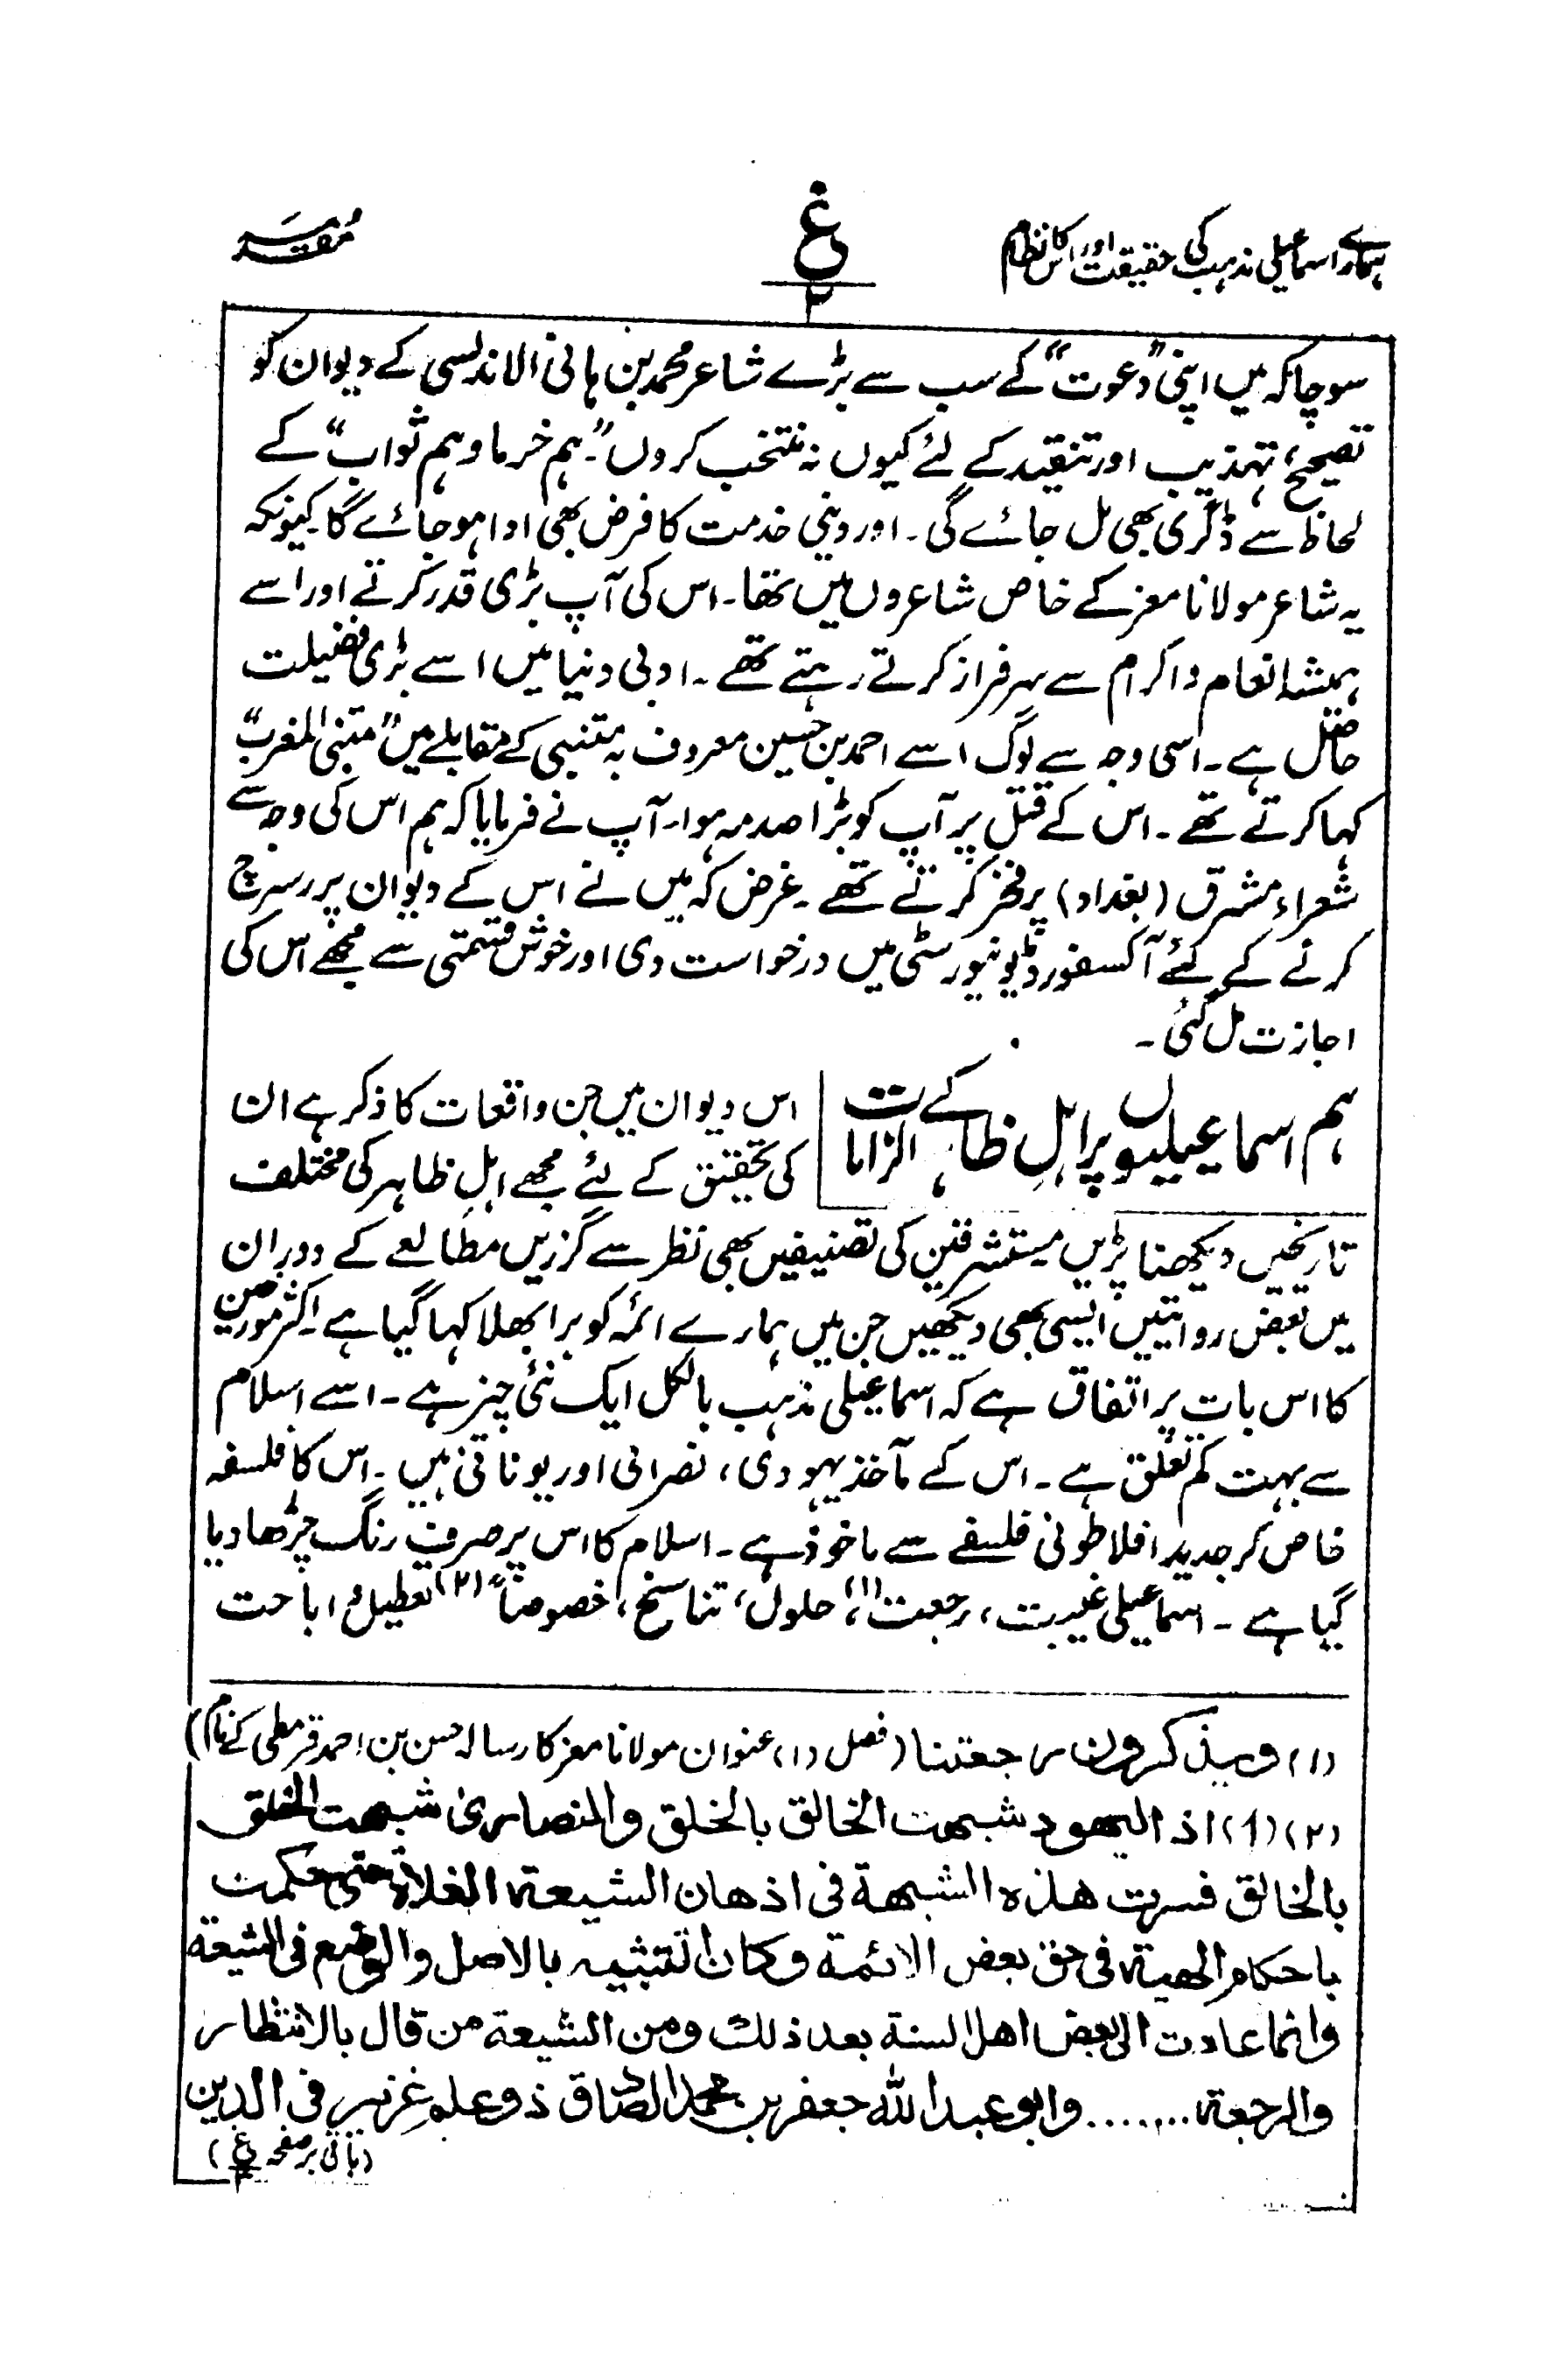 ہمارے اسماعیلی مذہب کی حقیقت اور اس کا نظام
غ
۲
مقدمہ
سوچا کہ میں اپنی ”دعوت“ کے سب سے بڑے شاعر محمد بن ہانی الاندلسی کے دیوان کو
تصحیح، تہذیب اور تنقید کے لئے کیوں نہ منتخب کروں۔ ”ہم خرما و ہم ثواب“ کے
لحاظ سے ڈگری بھی مل جائے گی۔ اور دینی خدمت کا فرض بھی ادا ہو جائے گا۔ کیونکہ
یہ شاعر مولانا معز کے خاص شاعروں میں تھا۔ اس کی آپ بڑی قدر کرتے اور اسے
ہمیشہ انعام و اکرام سے سرفراز کرتے رہتے تھے۔ ادبی دنیا میں اسے بڑی فضیلت
حاصل ہے۔ اسی وجہ سے لوگ اسے احمد بن حسین معروف بہ متنبی کے مقابلے میں ”متنبی المغرب“
کہا کرتے تھے۔ اس کے قتل پر آپ کو بڑا صدمہ ہوا۔ آپ نے فرمایا کہ ہم اس کی وجہ سے
شعراء مشرق (بغداد) پر فخر کرتے تھے۔ غرض کہ میں نے اس کے دیوان پر رسرچ
کرنے کے لئے آکسفورڈ یونیورسٹی میں درخواست دی اور خوش قسمتی سے مجھے اس کی
اجازت مل گئی۔
ہم اسماعیلیوں پر اہلِ ظاہر کے الزامات
اس دیوان میں جن واقعات کا ذکر ہے ان
کی تحقیق کے لئے مجھے اہلِ ظاہر کی مختلف
تاریخیں دیکھنا پڑیں مستشرقین کی تصنیفیں بھی نظر سے گزریں مطالعے کے دوران
میں بعض روایتیں ایسی بھی دیکھیں جن میں ہمارے ائمہ کو برا بھلا کہا گیا ہے۔ اکثر مورخین
کا اس بات پر اتفاق ہے کہ اسماعیلی مذہب بالکل ایک نئی چیز ہے۔ اسے اسلام
سے بہت کم تعلق ہے۔ اس کے مآخذ یہودی، نصرانی اور یونانی ہیں۔ اس کا فلسفہ
خاص کر جدید افلاطونی فلسفے سے ماخوذ ہے۔ اسلام کا اس پر صرف رنگ چڑھا دیا
گیا ہے۔ اسماعیلی غیبت، رجعت(۱)، حلول، تناسخ، خصوصاً(۲) تعطیل، اباحت
(۱) ویذکرون رجعتنا (فصل (۱) عنوان مولانا معز کا رسالہ حسن بن احمد قرمطی کے نام)
(۲) (۱) اذ الیهود شبهت الخالق بالخلق والنصاری شبهت الخلق
بالخالق فسرت هذه الشبهة فی اذهان الشیعة الغلاة حتی حکمت
باحکام الهیة فی حق بعض الائمة وکان التشبیه بالاصل والوضع فی الشیعة
وانما عادت الی بعض اهل السنة بعد ذلک ومن الشیعة من قال بالانتظار
والرجعة ........ وابو عبد الله جعفر بن محمد الصادق ذو علم غزیر فی الدین
(باقی بر صفحہ غ)